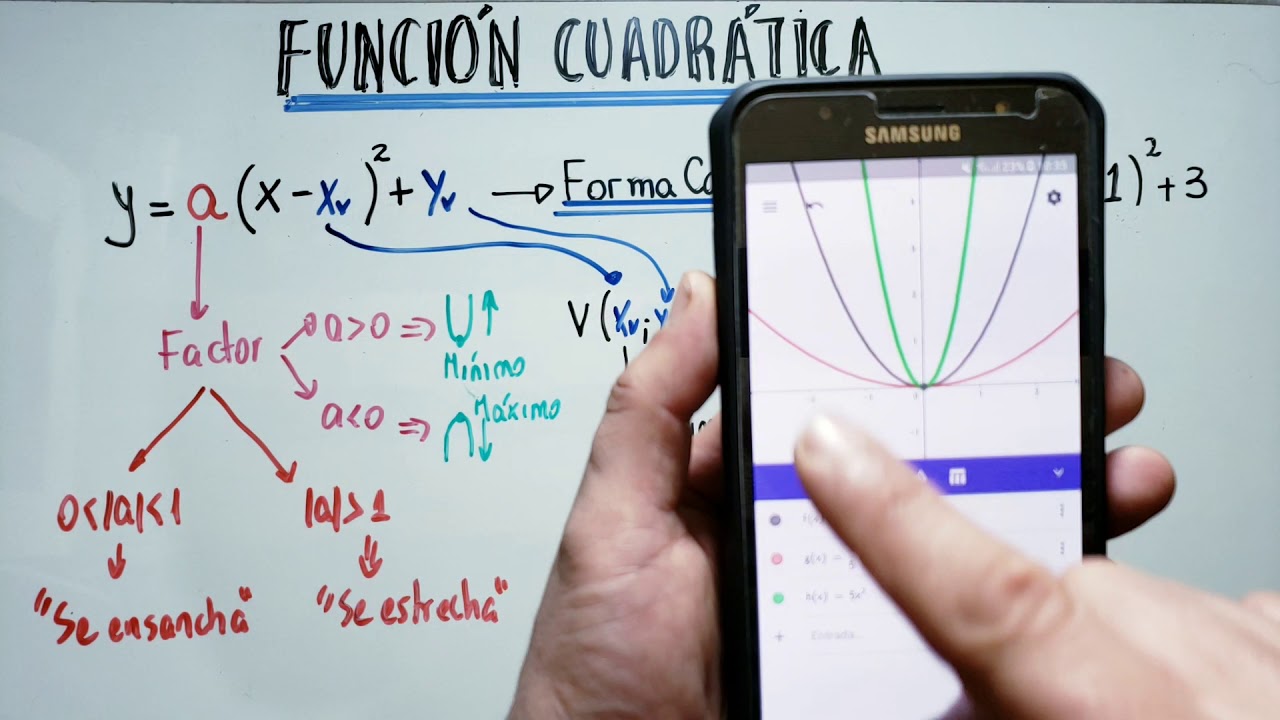 FUNCIÓN CUADRÁTICA
y = a (x - xᵥ)² + yᵥ → Forma
1)² + 3
Factor
a > 0 ⇒ ∪ ↑
Mínimo
a < 0 ⇒ ∩ ↓
Máximo
V (xᵥ ; y
0 < |a| < 1
|a| > 1
"Se ensancha"
"Se estrecha"
SAMSUNG
23%
h(x) = 5x²
Entrada...